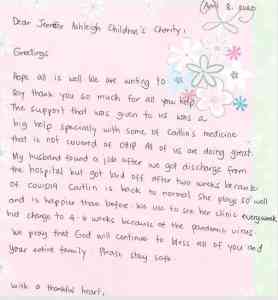 April 8, 2020
Dear Jennifer Ashleigh Children's Charity,
Greetings
Hope all is well We are writing to
Say thank you so much for all you help
The support that was given to us was a
big help specially with some of Caitlin's medicine
that is not covered of OHIP All of us are doing great.
My husband found a job after we got discharge from
the hospital but got laid off after two weeks because
of COVID19 Caitlin is back to normal she plays so well
and is happier than before. We use to see her clinic every week
but change to 4-6 weeks because of the pandemic virus
We pray that God will continue to bless all of you and
your entire family Please stay safe
with a thankful heart,